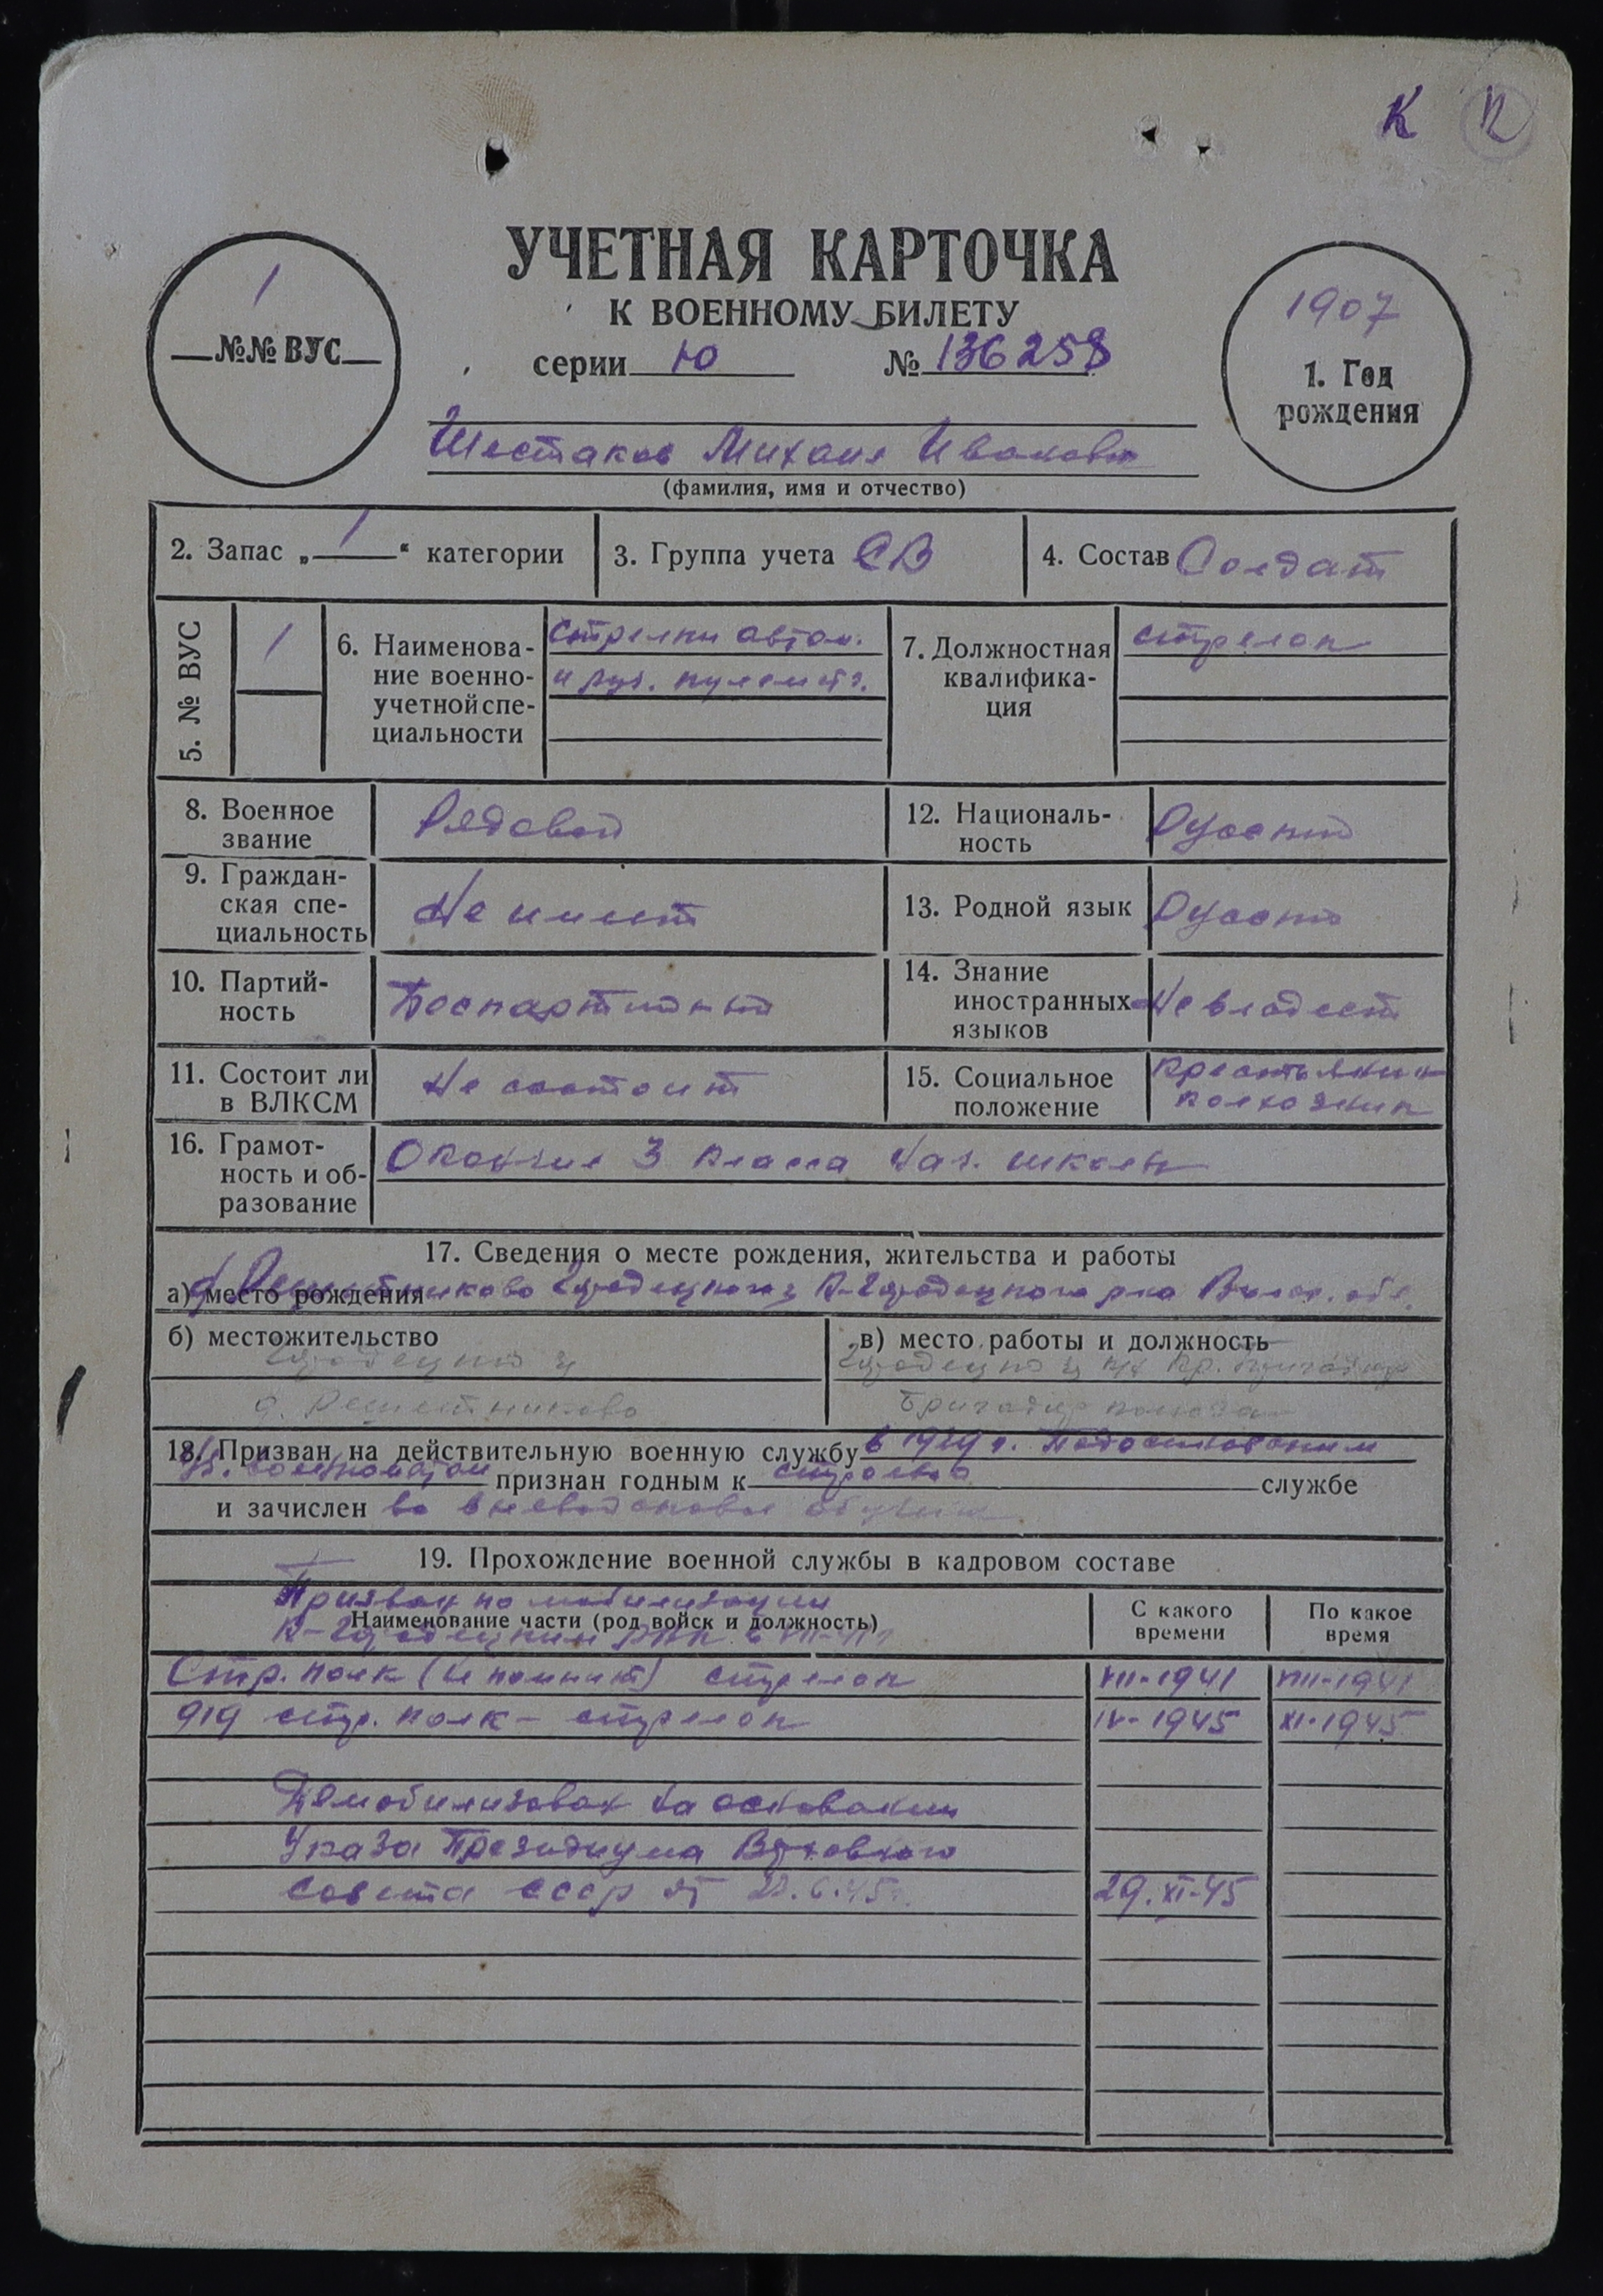 К
УЧЕТНАЯ КАРТОЧКА
К ВОЕННОМУ БИЛЕТУ
серии Ю № 136258
1
№№ ВУС
1907
1. Год
рождения
Шестаков Михаил Иванович
(фамилия, имя и отчество)
2. Запас „1“ категории
3. Группа учета СВ
4. Состав Солдат
5. № ВУС
1
6. Наименова-
ние военно-
учетной спе-
циальности
Стрелки автом.
и руч. пулемет.
7. Должностная
квалифика-
ция
стрелок
8. Военное
звание
Рядовой
12. Националь-
ность
Русский
9. Граждан-
ская спе-
циальность
Не имеет
13. Родной язык
Русский
10. Партий-
ность
Беспартийный
14. Знание
иностранных
языков
Не владеет
11. Состоит ли
в ВЛКСМ
Не состоит
15. Социальное
положение
Крестьянин
колхозник
16. Грамот-
ность и об-
разование
Окончил 3 класса нач. школы
17. Сведения о месте рождения, жительства и работы
а) место рождения д. Решетниково Городецкого К-Городецкого р-на Волог. обл.
б) местожительство
Городецкий
д. Решетниково
в) место работы и должность
Городецкий
Бригадир колхоза
18. Призван на действительную военную службу в 1929 г.
военкоматом признан годным к строевой службе
и зачислен во вневойсковое обучен
19. Прохождение военной службы в кадровом составе
Призван по мобилизации
К-Городецким РВК в VII-41 г
Наименование части (род войск и должность)
С какого
времени
По какое
время
Стр. полк (не помнит) стрелок VII-1941 VIII-1941
919 стр. полк - стрелок IV-1945 XI-1945
Демобилизован на основании
Указа Президиума Верховного
Совета СССР от 6.45 г. 29.XI-45